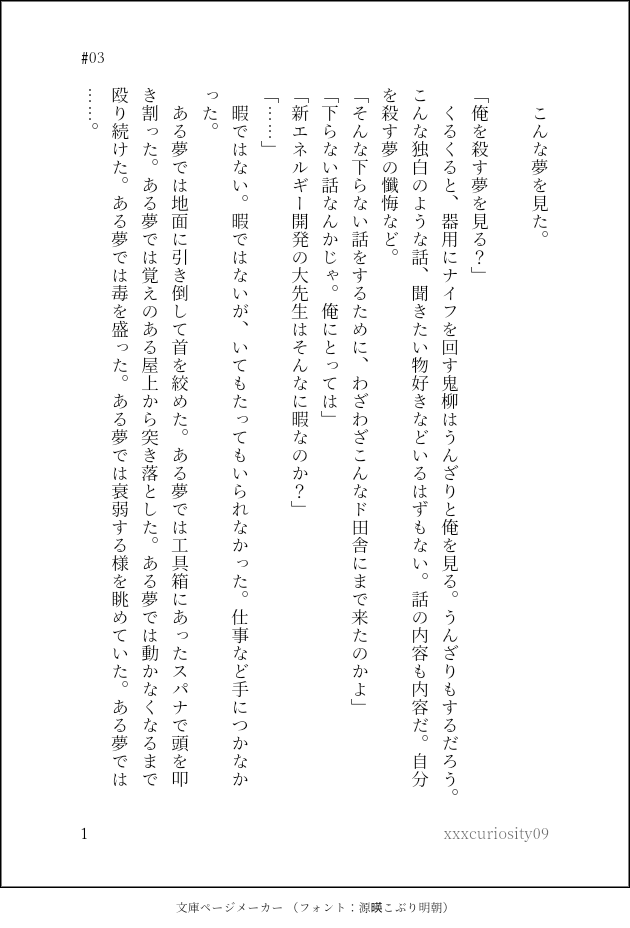 #03
こんな夢を見た。
「俺を殺す夢を見る？」
くるくると、器用にナイフを回す鬼柳はうんざりと俺を見る。うんざりもするだろう。
こんな独白のような話、聞きたい物好きなどいるはずもない。話の内容も内容だ。自分
を殺す夢の懺悔など。
「そんな下らない話をするために、わざわざこんなド田舎にまで来たのかよ」
「下らない話なんかじゃ。俺にとっては」
「新エネルギー開発の大先生はそんなに暇なのか？」
「……」
暇ではない。暇ではないが、いてもたってもいられなかった。仕事など手につかなか
った。
ある夢では地面に引き倒して首を絞めた。ある夢では工具箱にあったスパナで頭を叩
き割った。ある夢では覚えのある屋上から突き落とした。ある夢では動かなくなるまで
殴り続けた。ある夢では毒を盛った。ある夢では衰弱する様を眺めていた。ある夢では
……。
1
xxxcuriosity09
文庫ページメーカー（フォント：源暎こぶり明朝）